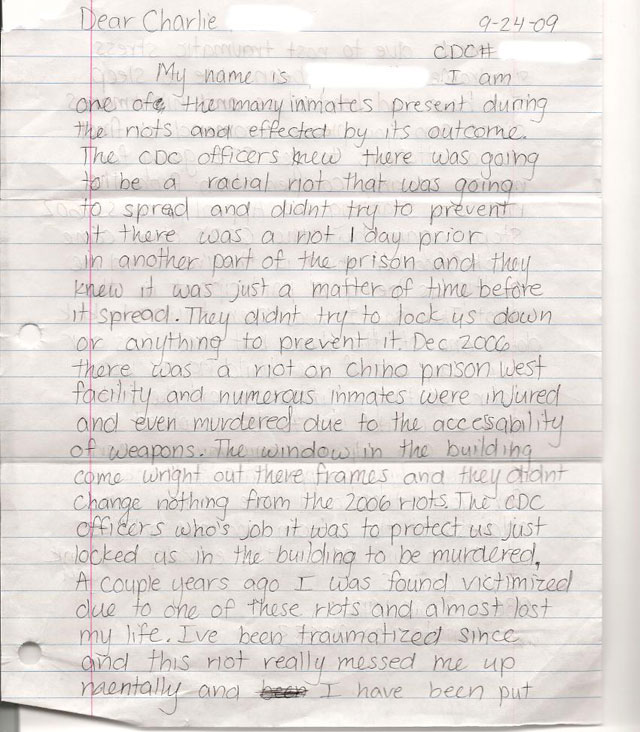 Dear Charlie
9-24-09
CDC#
My name is I am
one of the many inmates present during
the riots and effected by its outcome.
The CDC officers knew there was going
to be a racial riot that was going
to spread and didnt try to prevent
it there was a riot 1 day prior
in another part of the prison and they
knew it was just a matter of time before
it spread. They didnt try to lock us down
or anything to prevent it. Dec 2006
there was a riot on Chino prison west
facility and numerous inmates were injured
and even murdered due to the accessability
of weapons. The window in the building
come wright out there frames and they didnt
change nothing from the 2006 riots. The CDC
officers who's job it was to protect us just
locked us in the building to be murdered.
A couple years ago I was found victimized
due to one of these riots and almost lost
my life. I've been traumatized since
and this riot really messed me up
maentally and been I have been put